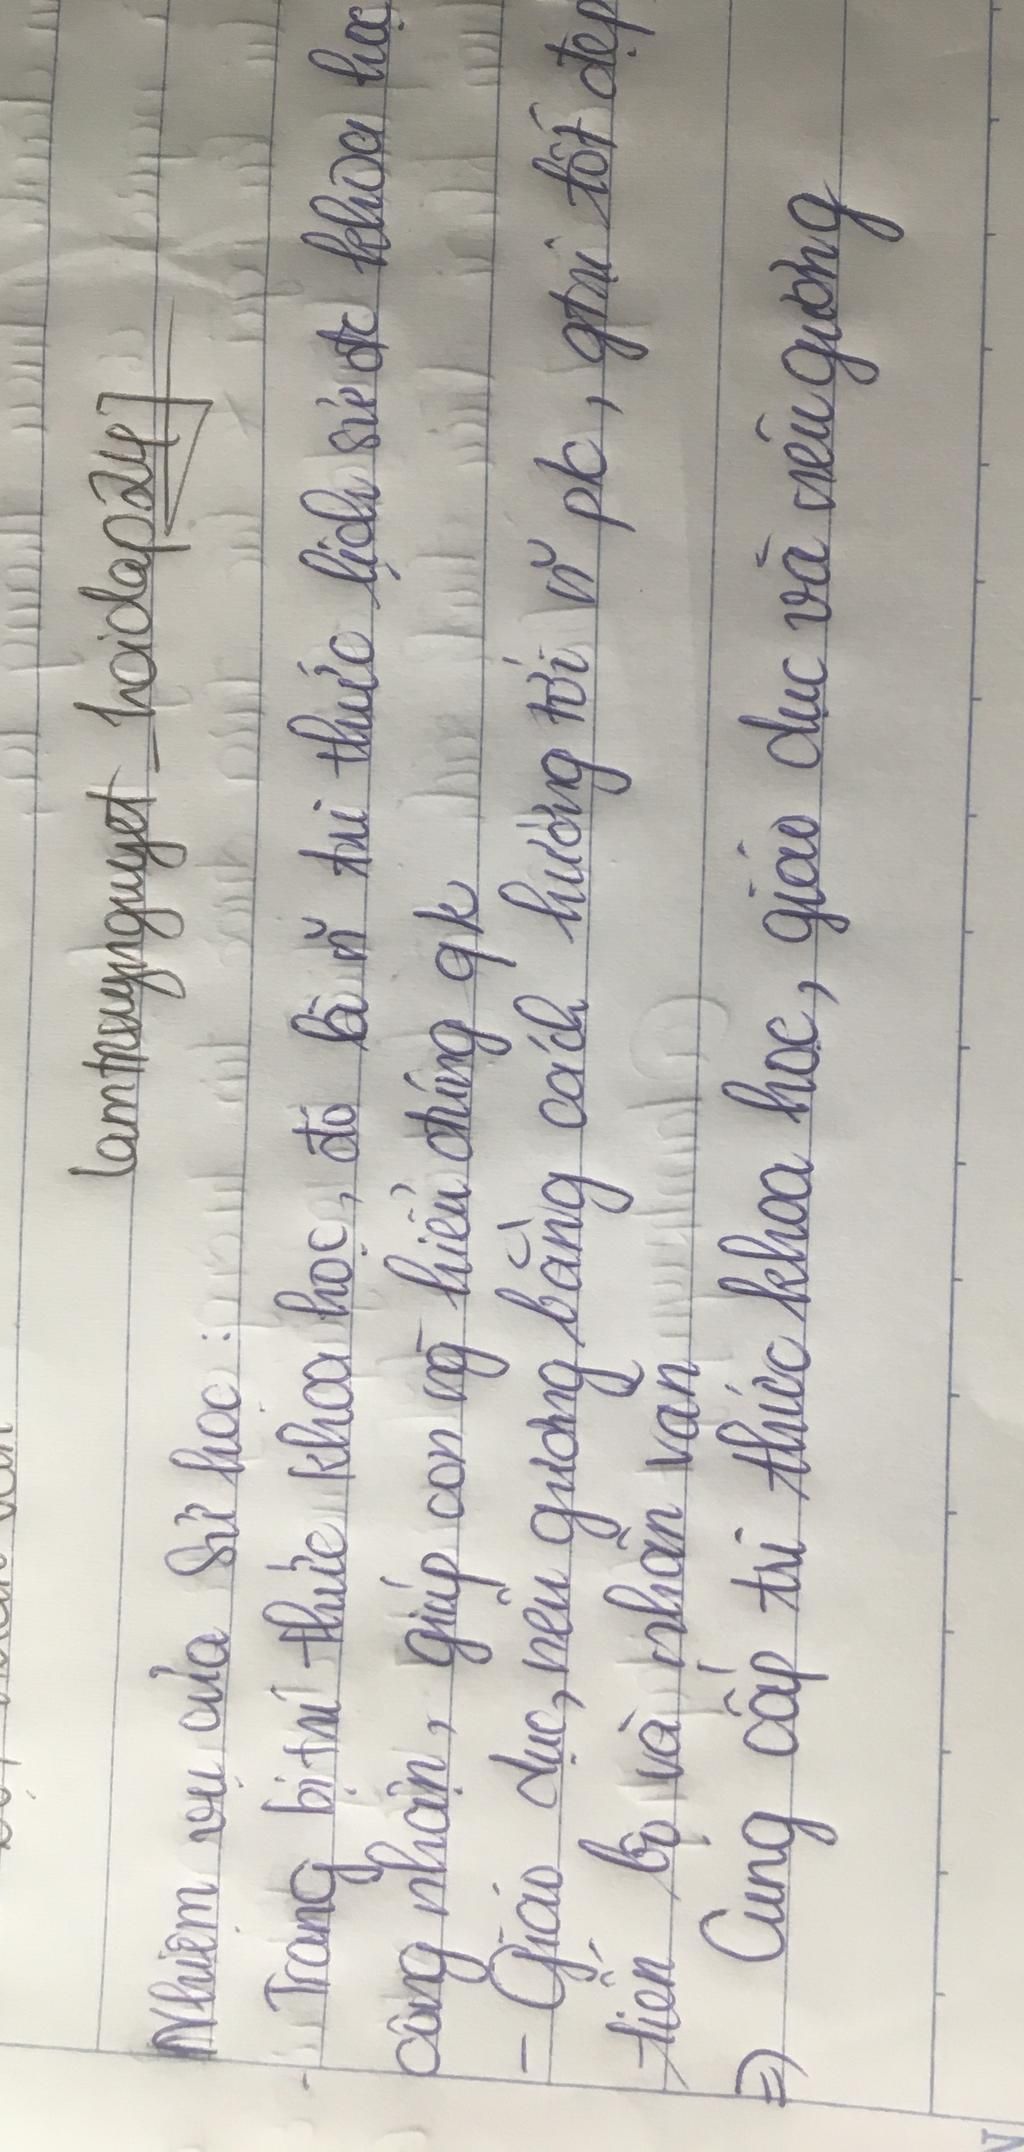 lamtrsuynguyet_hoidap247
Nhiệm vụ của Sử học :
- Trang bị tri thức khoa học, đó là n~ tri thức lịch sử đc khoa học
công nhận, giúp con ng hiểu đúng qk
- Giáo dục, nêu gương bằng cách hướng tới n~ pc, gtrị tốt đẹp
tiến bộ và nhân văn
=) Cung cấp tri thức khoa học, giáo dục và nêu gương